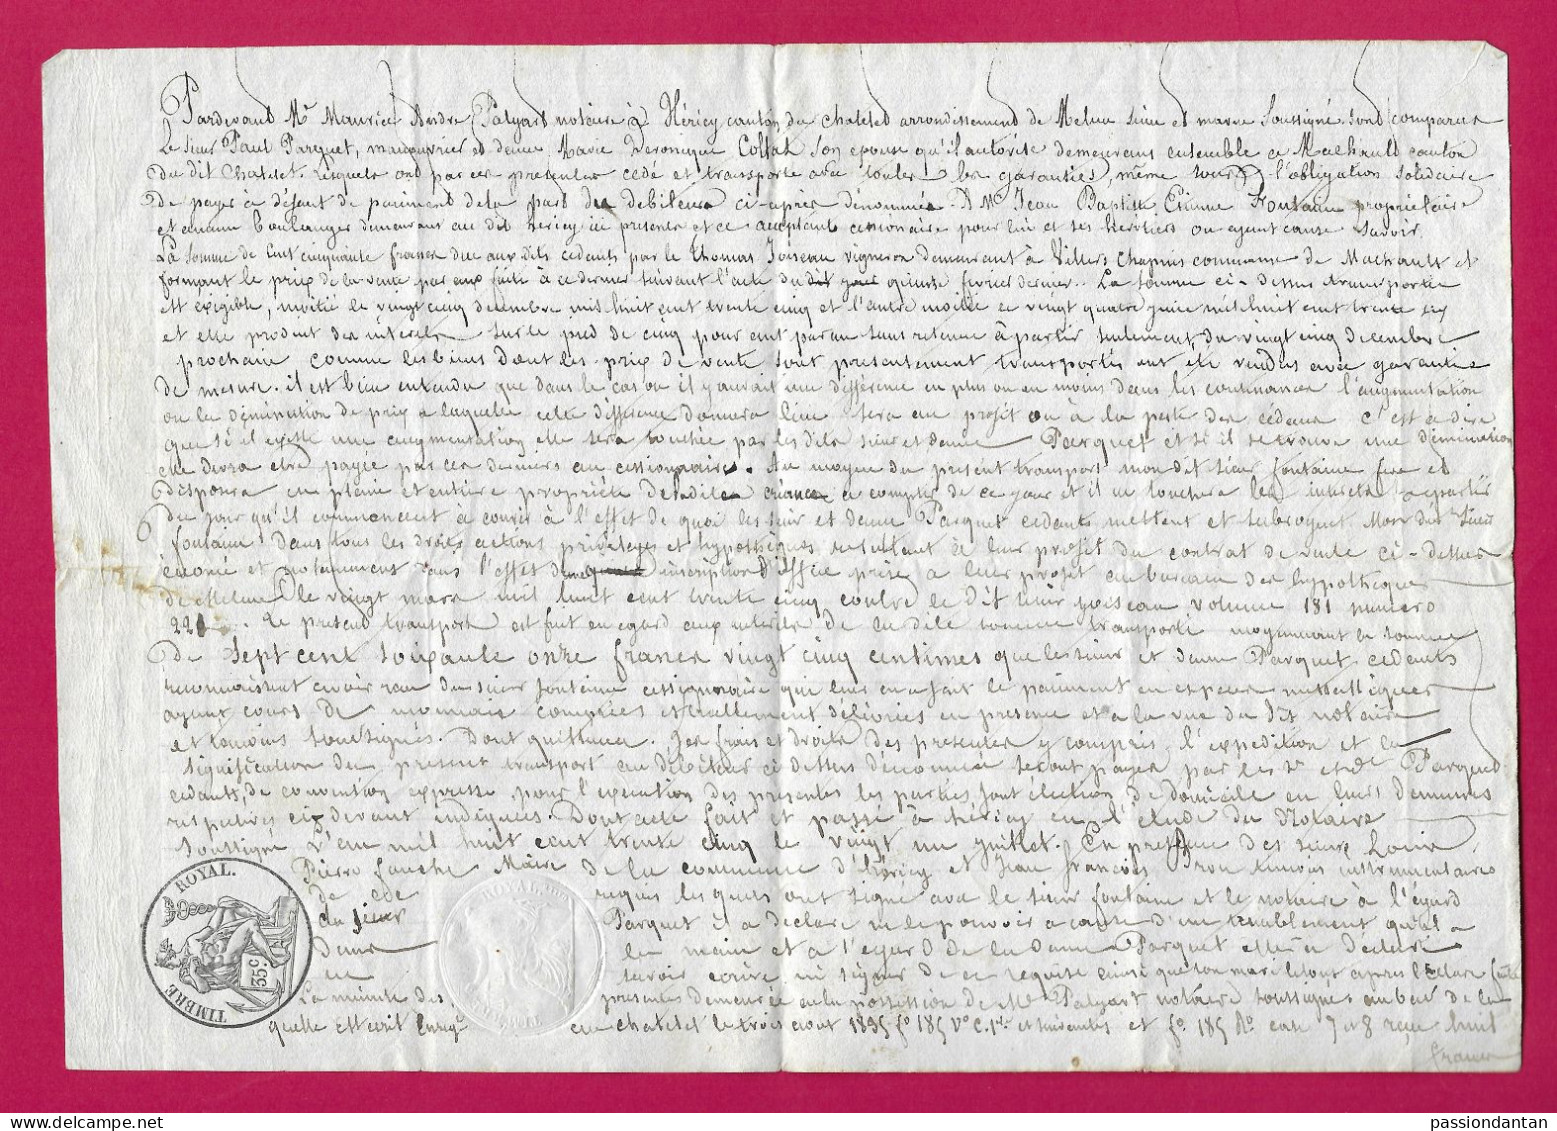 Pardevant Me Maurice Andre Palyart notaire à Héricy canton du chatelet arrondissement de Melun seine et marne Soussigné sont comparus
Le sieur Paul Parquet, manouvrier et dame Marie Veronique Collat son epouse qu'il autorise demeurans ensemble a Machault canton
Du dit Chatelet. Lesquels ont par ces presentes cedé et transporté avec toutes les garanties, même sous l'obligation solidaire
De payer à défaut de paiement de la part du debiteur ci-après dénommé. A Mr Jean Baptiste Etienne Fontaine propriétaire
et ancien boulanger demeurant au dit hericy ici present et ce acceptant cessionaire pour lui et ses héritiers ou ayant cause savoir
La somme de cent cinquante francs due aux dits cedants par le Thomas Joiseau vigneron demeurant à Villers Chapuis commune de Machault et
formant le prix de la vente par eux faite à ce dernier suivant l'acte du dit jour quinze fevrier dernier. La somme ci-dessus transportée
est exigible, moitié le vingt cinq decembre mil huit cent trente cinq et l'autre moitié le vingt quatre juin mil huit cent trente six
et elle produit des intérêts sur le pied de cinq pour cent par an sans retenue à partir seulement du vingt cinq decembre
prochain comme les biens dont les prix de vente sont presentement transportés ont été vendus avec garantie
de mesure. il est bien entendu que dans le cas ou il y aurait une différence en plus ou en moins dans les contenances l'augmentation
ou la diminution de prix a laquelle cette différence donnera lieu sera au profit ou à la perte des cédans c'est a dire
que s'il existe une augmentation elle sera touchée par les dits sieur et dame Parquet et s'il se trouve une diminution
elle devra etre payée par ces derniers au cessionnaire. Au moyen du present transport mon dit sieur fontaine fera et
disposera en pleine et entière propriété desdites créances a compter de ce jour et il en touchera les interets a partir
Du jour qu'il commencent à courir à l'effet de quoi les sieur et dame Parquet cedants mettent et subrogent Mon dit Sieur
fontaine dans tous les droits, actions privileges et hypothèques resultant à leur profit du contrat de vente ci-dessus
énoncé et notamment dans l'effet de inscription d'office prise a leur profit au bureau des hypothèques
de Melun le vingt mars mil huit cent trente cinq contre le dit sieur Joiseau volume 181 numero
221. Le present transport est fait en egard aux interets de la dite somme transportée moyennant la somme
De sept cent soixante onze francs vingt cinq centimes que les sieur et dame Parquet cedants
reconnaissent avoir recu du sieur fontaine cessionnaire qui leur en a fait le paiement en especes metalliques
ayant cours de monnaie comptées et reellement délivrées en presence et a la vue du dit notaire
et temoins soussignés. Dont quittance. Les frais et droits des presentes y compris l'expedition et la
signification du present transport au débiteur ci dessus dénommé seront payés par les Sr et de Parquet
cedants, de convention expresse pour l'execution des presentes les parties font élection de domicile en leurs demeures
respectives ci devant indiquées. Dont acte fait et passé à héricy en l'étude du Notaire
soussigné L'an mil huit cent trente cinq le vingt un juillet. En presence des sieurs Louis
Pierre Maire de la commune d'héricy et Jean francois Brou temoins instrumentaires
de ede requis lesquels ont signé avec le sieur fontaine et le notaire à l'égard
du sieur Parquet il a declaré ne le pouvoir a cause d'un tremblement qu'il a
dans la main et a l'egard de la dame Parquet elle a declaré
ne savoir ecrire ni signer de ce requise ainsi que son mari le tout apres lecture faite
La minute des presentes demeurée en la possession de Me Palyart notaire soussigné au bas de la
quelle est ecrit Enreg au chatelet le trois aout 1835 fo 185 Vo c. 1re et suivantes et fo. 185 Ro case 7 et 8 reçu huit
francs
TIMBRE ROYAL.
35 c
passiondantan